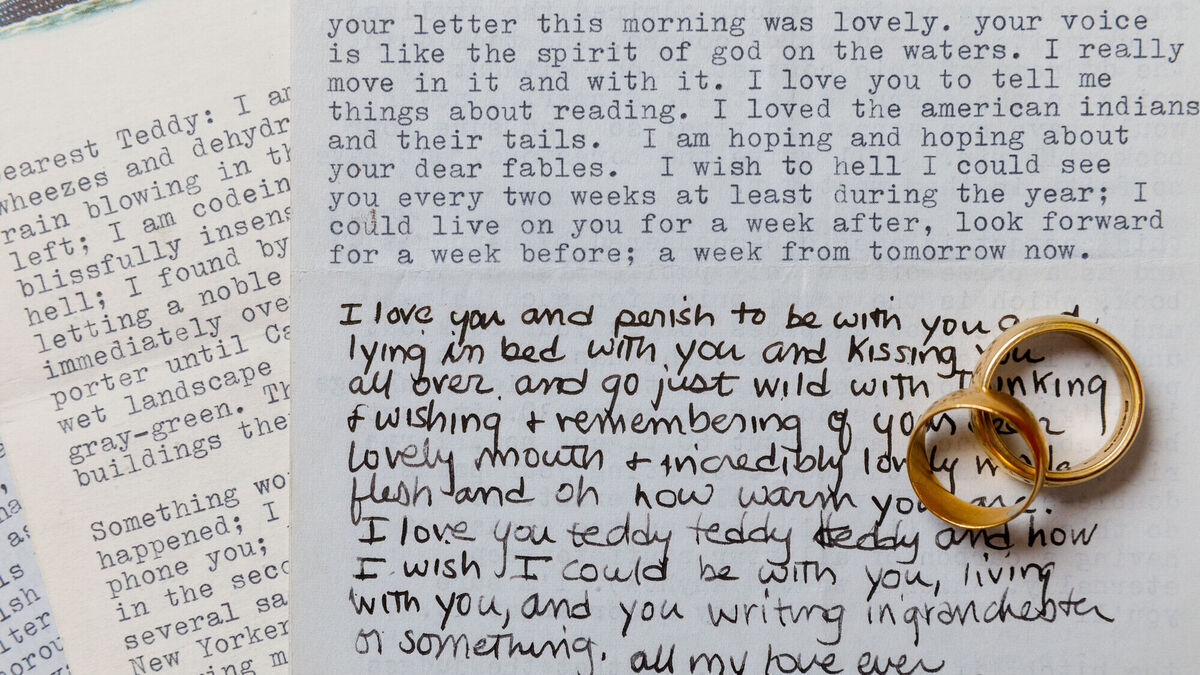 earest Teddy: I a
wheezes and dehydr
rain blowing in th
left; I am codein
blissfully insens
hell; I found by
letting a noble
immediately ove
porter until Ca
wet landscape
gray-green. Th
buildings the
Something wo
happened; I
phone you;
in the seco
several sa
New Yorker
ing m
your letter this morning was lovely. your voice
is like the spirit of god on the waters. I really
move in it and with it. I love you to tell me
things about reading. I loved the american indians
and their tails. I am hoping and hoping about
your dear fables. I wish to hell I could see
you every two weeks at least during the year; I
could live on you for a week after, look forward
for a week before; a week from tomorrow now.
I love you and perish to be with you
lying in bed with you and kissing you
all over and go just wild with thinking
& wishing & remembering of your
lovely mouth & incredibly lovely
flesh and oh how warm you are.
I love you teddy teddy teddy and how
I wish I could be with you, living
with you, and you writing in granchester
or something. all my love ever